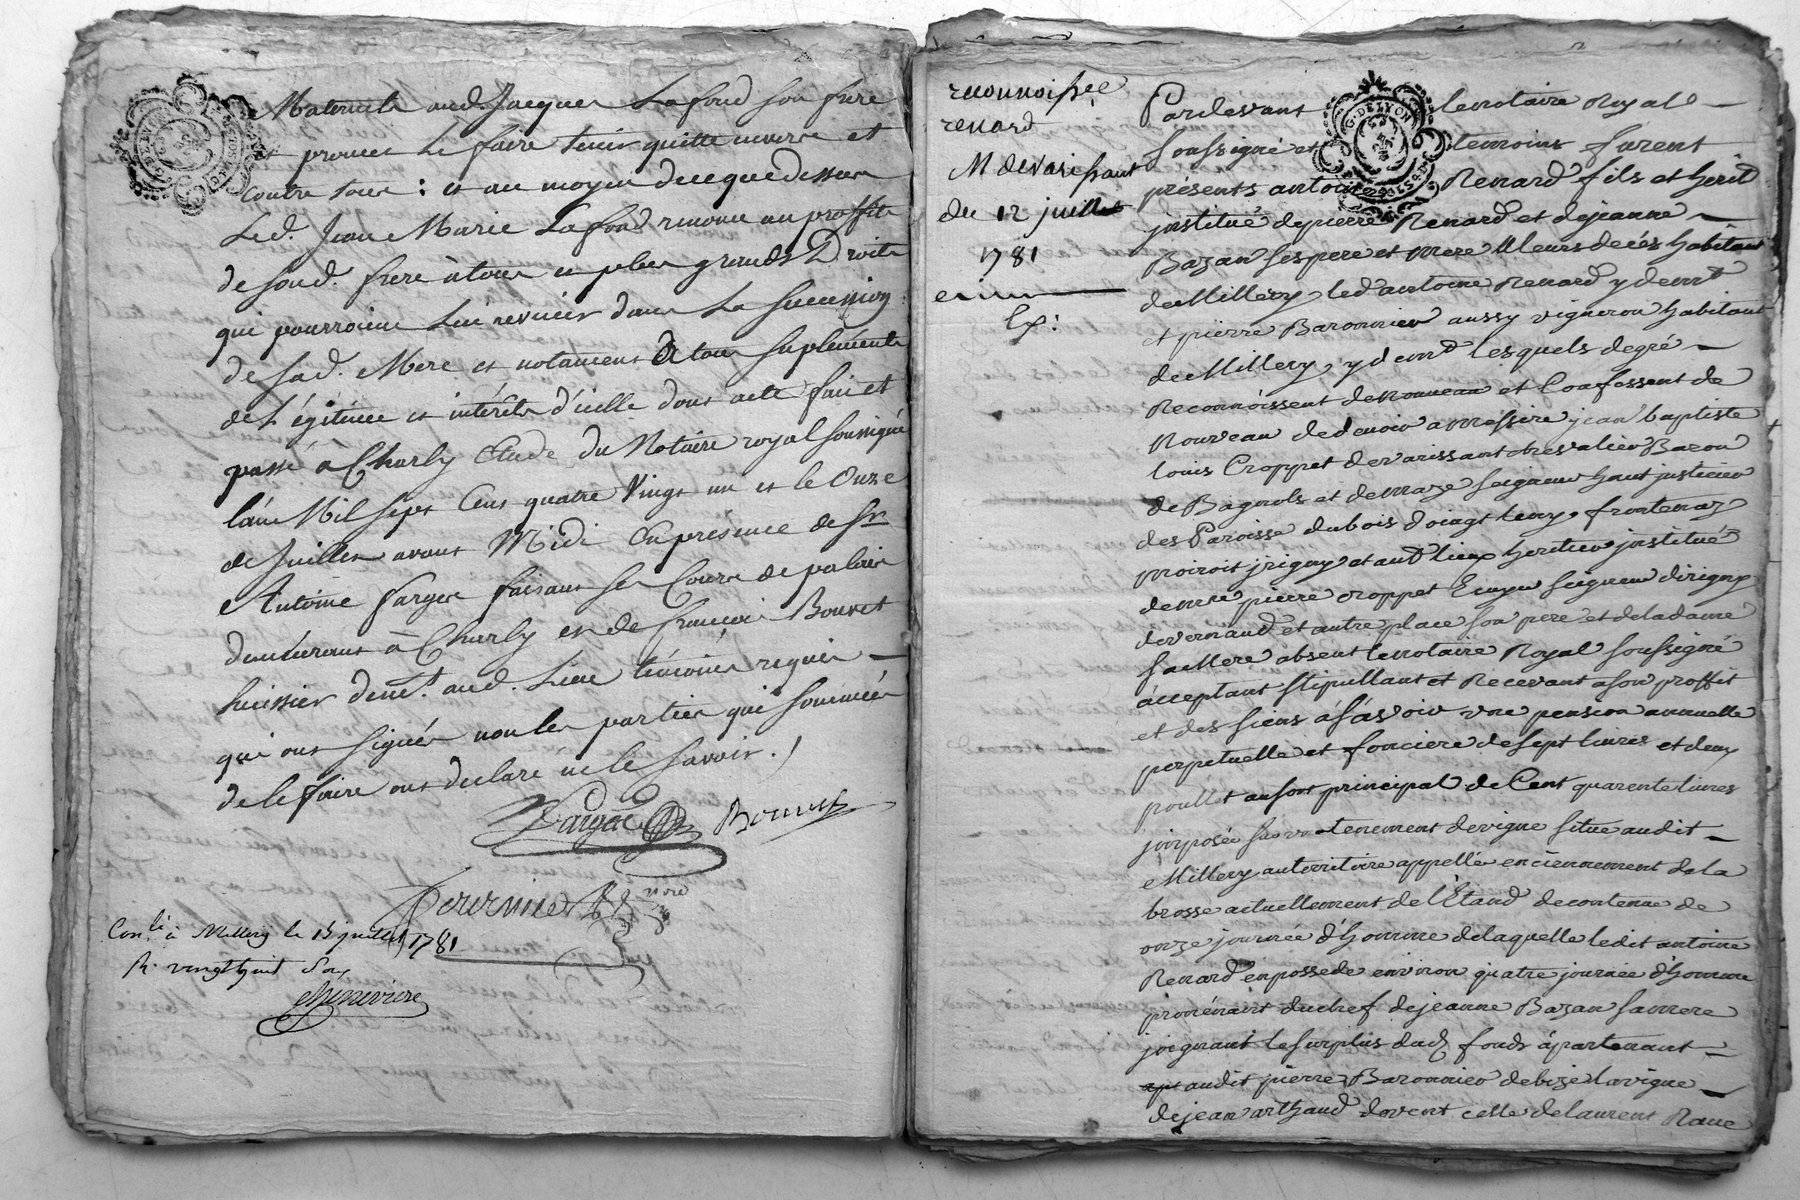 Maternels aud. Jacques Lafond son frere
et promet le faire tenir quitte envers et
contre tous : et au moyen de ce que dessus
Led. Jean Marie Lafond renonce au proffit
de sond. frere à tous et plus grands Droits
qui pourroient lui revenir dans La succession
de sad. Mere et notament de tous suplements
de Légitime et intérêts d'icelle dont acte fait et
passé a Charly Etude du Notaire royal soussigné
l'an Mil sept Cent quatre Vingt un et le Onze
de Juillet avant Midi En presence de Sr
Antoine fargere faisant ses Cours de palais
demeurant à Charly et de françois Bouvet
huissier demt. aud. Lieu témoins requis
qui ont signés non les parties qui sommées
de le faire ont declaré ne le savoir.
Bouvet
not
Conlé à Millery le 15 juillet 1781
R. vingt huit Sous
Chenevière
G. DE LYON
reconnoissce
renard
M devarissant
du 12 juillet
1781
Ex:
Pardevant le notaire Royal
soussigné et temoins furent
présents antoine Renard fils et herit
institué de pierre Renard et de jeanne
Bazan ses pere et mere Meurs decés habitant
de Millery, led antoine Renard y demt
et pierre Baronnier aussy vigneron habitant
de Millery, y demt lesquels de gré
Reconnoissent de nouveau et Confessent de
Nouveau de devoir a messire jean baptiste
louis Croppet de varissant chevalier Baron
de Bagnols et de marze seigneur haut justicier
des Paroisse du bois doingt leny, frontenaz
moiroit jrigny et autt lieux heritier institué
de mre pierre croppet Ecuyer seigneur dirigny
de vernand et autre place son pere et de la dame
sa Mere absent le notaire Royal soussigné
acceptant stipullant et Recevant a son proffit
et des siens á sasvoir une pension annuelle
perpetuelle et fonciere de sept livres et deux
poullet au sort principal de Cent quarente livres
jmposée sur un tenement de vigne situe audit
Millery au territoire appellé enciennement de la
brosse actuellement de l'Etand de contenue de
onze journée d'homme de laquelle ledit antoine
Renard en possede environ quatre journée d'homme
provénant du chef de jeanne Bazan sa mere
joignant le surplus dud fonds ápartenant
audit pierre Baronnier de bize la vigne
de jean arthaud de vent celle de laurent Rave